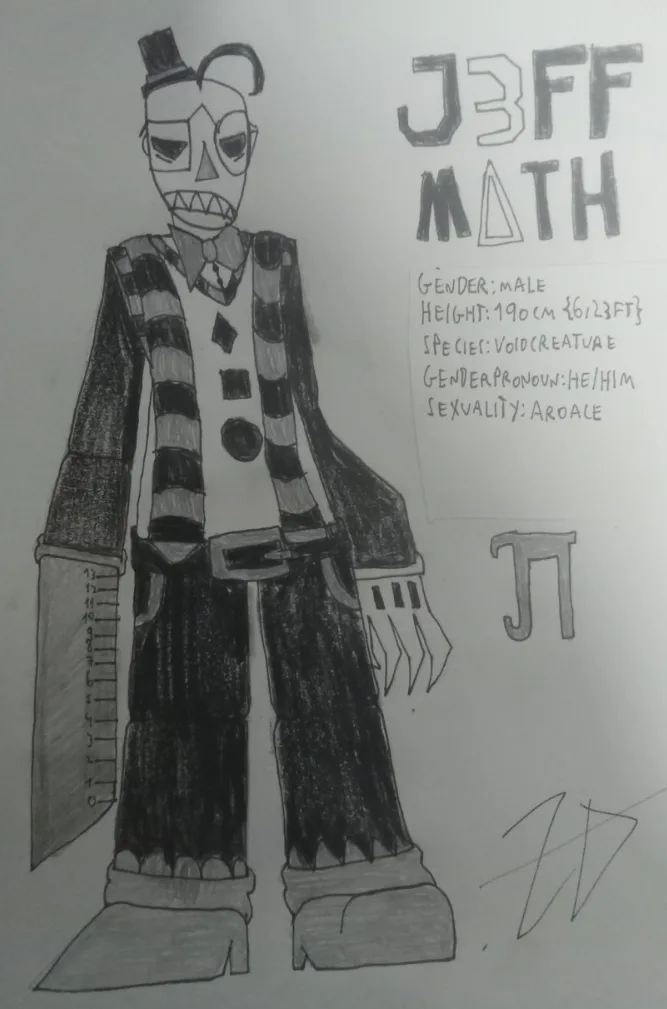 J3FF
MΔTH
GENDER:MALE
HEIGHT:190CM {6,23FT}
SPECIES:VOIDCREATURE
GENDERPRONOUN:HE/HIM
SEXUALITY:AROACE
π
ZD